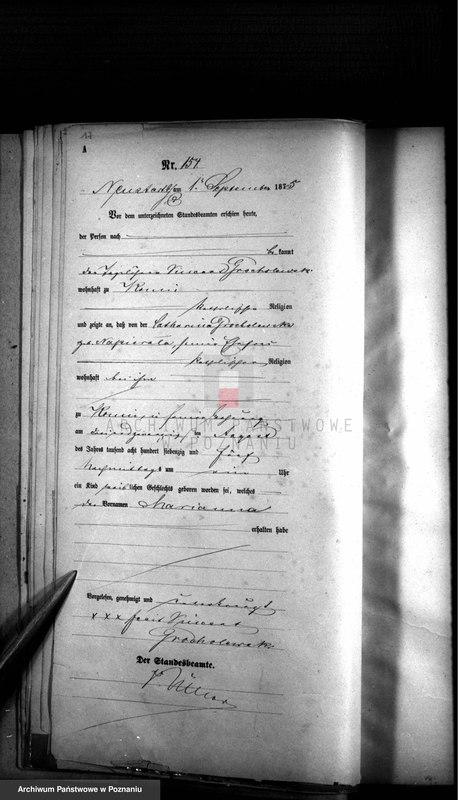 17
A
Nr. 154
Neustadt am 1. September 1875
Vor dem unterzeichneten Standesbeamten erschien heute,
der Person nach
be kannt
der Tagelöhner Vincent Grocholewski
wohnhaft zu Komin
katholischer Religion
und zeigte an, daß von der Catharina Grocholewska
geb. Napierala, seiner Ehefrau
katholischer Religion
wohnhaft bei ihm
ARCHIWUM PAŃSTWOWE
W POZNANIU
zu Komin in seiner Wohnung
am August
des Jahres tausend acht hundert siebenzig und fünf
Nachmittags um ein Uhr
ein Kind weiblichen Geschlechts geboren worden sei, welches
den Vornamen Marianna
erhalten habe
Vorgelesen, genehmigt und unterkreuzt
xxx Vincent
Grocholewski
Der Standesbeamte.
Archiwum Państwowe w Poznaniu